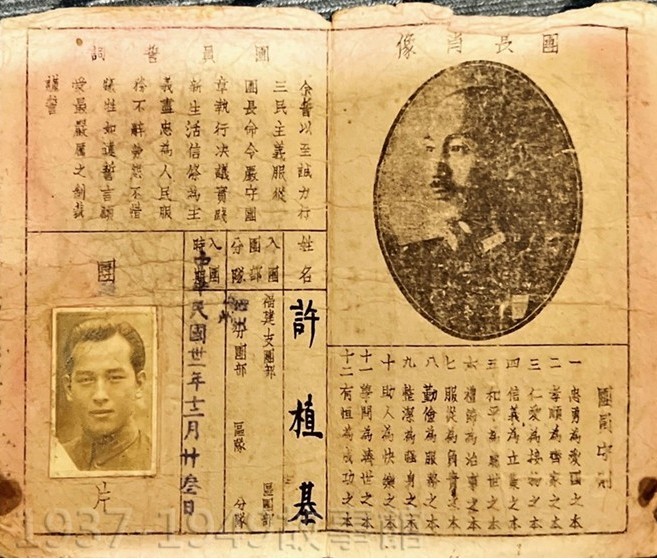 團長肖像
團員守則
一 忠勇為愛國之本
二 孝順為齊家之本
三 仁愛為接物之本
四 信義為立業之本
五 和平為處世之本
六 禮節為治事之本
七 服從為負責之本
八 勤儉為服務之本
九 整潔為強身之本
十 助人為快樂之本
十一 學問為濟世之本
十二 有恆為成功之本
團員誓詞
余誓以至誠力行
三民主義服從
團長命令嚴守團
章執行決議實踐
新生活信條為主
義盡忠為人民服
務不辭勞怨不惜
犧牲如違誓言願
受最嚴厲之制裁
謹誓
姓名 許植基
入團團部分隊 福建支團部 區團部
分團部 區隊 分隊
入團時期 中華民國卅一年十二月廿叁日
團 片
1937-1949故事館